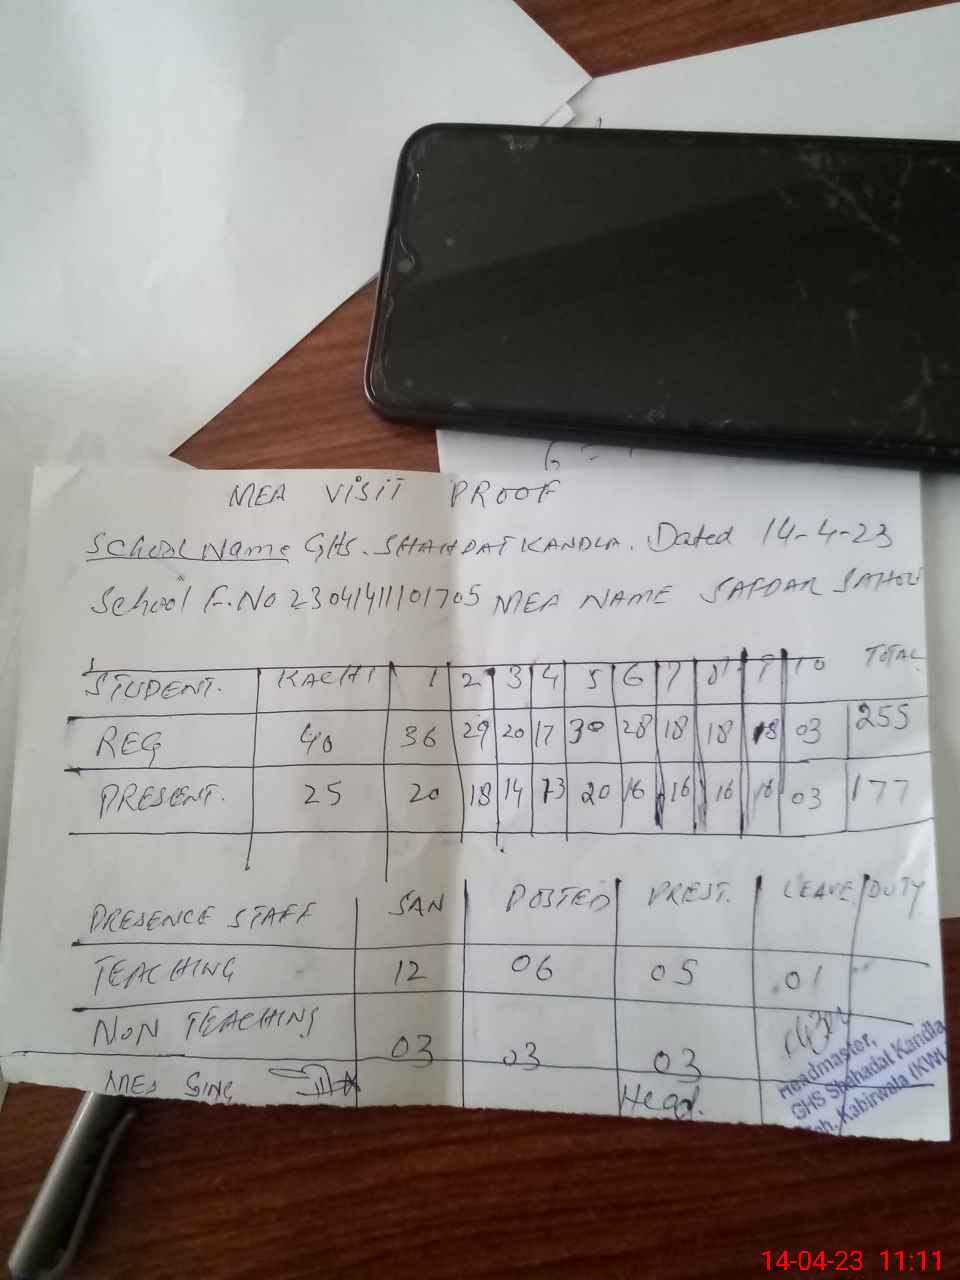 MEA VISIT PROOF
School Name GHS. SHAHDAT KANDLA. Dated 14-4-23
School E.No 2304141101705 MEA NAME SAFDAR SAHOU
STUDENT. KACHI 1 2 3 4 5 6 7 8 9 10 TOTAL
REG 40 36 29 20 17 30 28 18 18 18 03 255
PRESENT. 25 20 18 14 13 20 16 16 16 16 03 177
PRESENCE STAFF SAN POSTED PREST. LEAVE DUTY
TEACHING 12 06 05 01
NON TEACHING 03 03 03
MEA SING Head.
Headmaster,
GHS Shahadat Kandla
Teh. Kabirwala (KWL
14-04-23 11:11